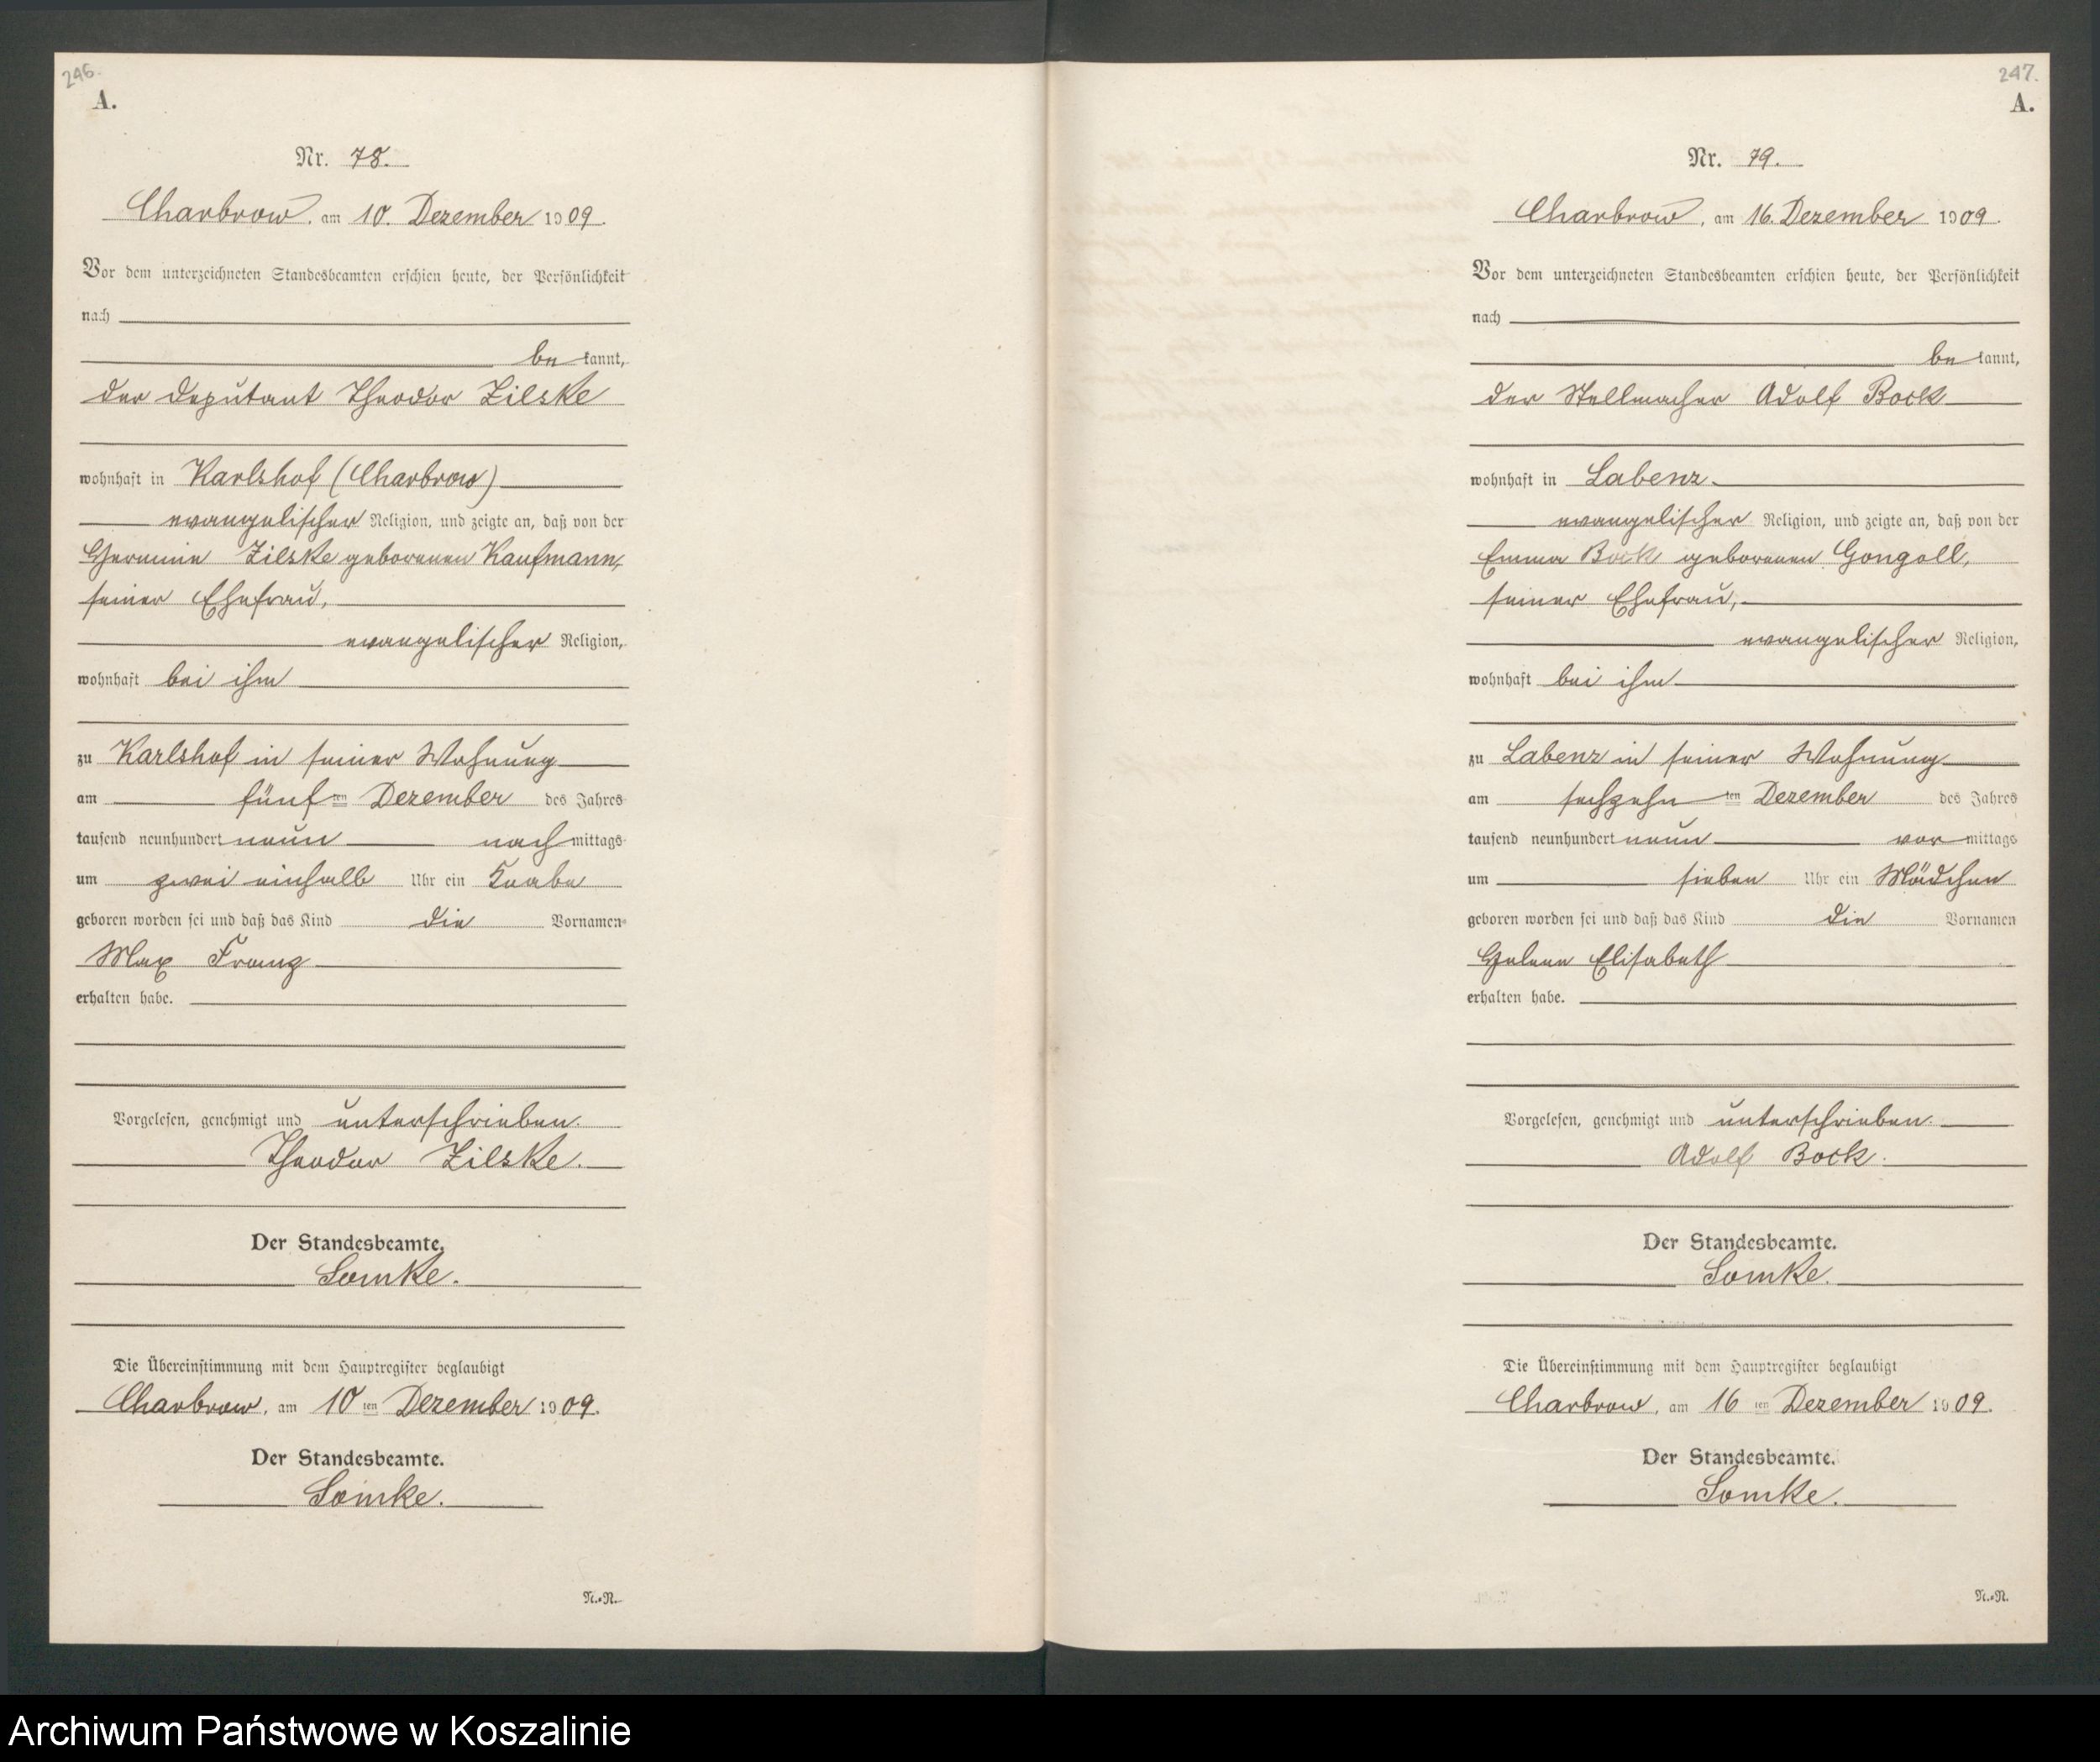 246.
A.
Nr. 78.
Charbrow, am 10. Dezember 1909.
Vor dem unterzeichneten Standesbeamten erschien heute, der Persönlichkeit
nach
be kannt,
der Deputant Theodor Zilske
wohnhaft in Karlshof (Charbrow)
evangelischer Religion, und zeigte an, daß von der
Hermine Zilske geborenen Kaufmann,
seiner Ehefrau,
evangelischer Religion,
wohnhaft bei ihm
zu Karlshof in seiner Wohnung
am fünf ten Dezember des Jahres
tausend neunhundert neun nach mittags
um zwei einhalb Uhr ein Knabe
geboren worden sei und daß das Kind die Vornamen
Max Franz
erhalten habe.
Vorgelesen, genehmigt und unterschrieben.
Theodor Zilske.
Der Standesbeamte.
Lomke.
Die Übereinstimmung mit dem Hauptregister beglaubigt
Charbrow, am 10 ten Dezember 1909.
Der Standesbeamte.
Lomke.
N.=N.
247.
A.
Nr. 79.
Charbrow, am 16. Dezember 1909.
Vor dem unterzeichneten Standesbeamten erschien heute, der Persönlichkeit
nach
be kannt,
der Stellmacher Adolf Bock
wohnhaft in Labenz
evangelischer Religion, und zeigte an, daß von der
Emma Bock geborenen Gongoll,
seiner Ehefrau,
evangelischer Religion,
wohnhaft bei ihm
zu Labenz in seiner Wohnung
am sechzehn ten Dezember des Jahres
tausend neunhundert neun vor mittags
um sieben Uhr ein Mädchen
geboren worden sei und daß das Kind die Vornamen
Helene Elisabeth
erhalten habe.
Vorgelesen, genehmigt und unterschrieben.
Adolf Bock.
Der Standesbeamte.
Lomke.
Die Übereinstimmung mit dem Hauptregister beglaubigt
Charbrow, am 16 ten Dezember 1909.
Der Standesbeamte.
Lomke.
N.=N.
Archiwum Państwowe w Koszalinie